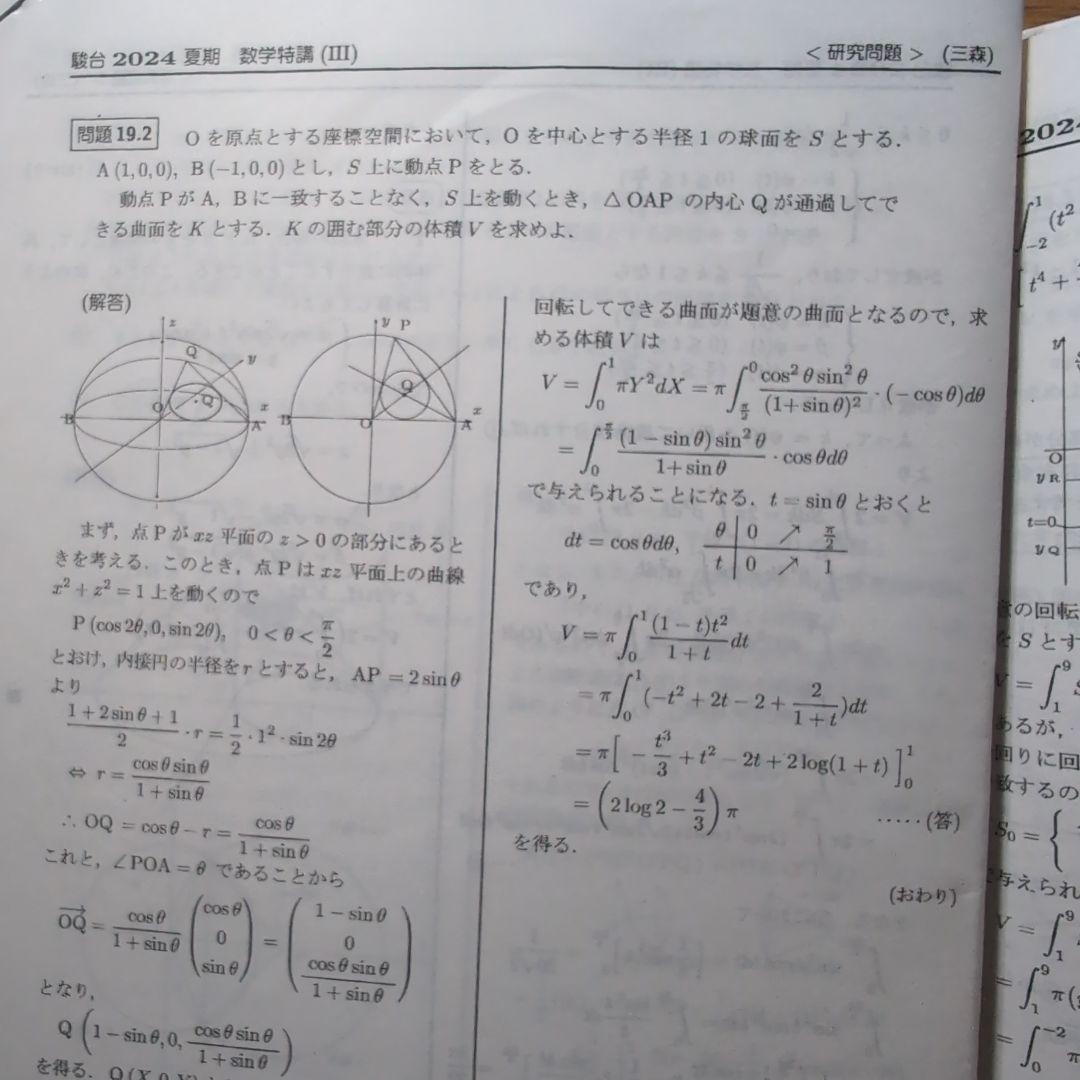 駿台 2024 夏期 数学特講 (III)
< 研究問題 > (三森)
問題 19.2 O を原点とする座標空間において, O を中心とする半径 1 の球面を S とする.
A (1,0,0), B(−1,0,0) とし, S 上に動点 P をとる.
動点 P が A, B に一致することなく, S 上を動くとき, △OAP の内心 Q が通過してで
きる曲面を K とする. K の囲む部分の体積 V を求めよ.
(解答)
z
Q
y
O
Q
B
A
x
y
P
Q
B
O
A
x
まず, 点 P が xz 平面の z > 0 の部分にあると
きを考える. このとき, 点 P は xz 平面上の曲線
x² + z² = 1 上を動くので
P (cos 2θ, 0, sin 2θ), 0 < θ < π/2
とおけ, 内接円の半径を r とすると, AP = 2 sin θ
より
(1 + 2 sin θ + 1)/2 · r = 1/2 · 1² · sin 2θ
⇔ r = cos θ sin θ/(1 + sin θ)
∴ OQ = cos θ − r = cos θ/(1 + sin θ)
これと, ∠POA = θ であることから
OQ→ = cos θ/(1 + sin θ) (cos θ, 0, sin θ) = (1 − sin θ, 0, cos θ sin θ/(1 + sin θ))
となり,
Q (1 − sin θ, 0, cos θ sin θ/(1 + sin θ))
を得る.
回転してできる曲面が題意の曲面となるので, 求
める体積 V は
V = ∫₀¹ πY²dX = π ∫_{π/2}^{0} cos² θ sin² θ/(1+ sin θ)² · (− cos θ)dθ
= ∫₀^{π/2} (1 − sin θ) sin² θ/(1+ sin θ) · cos θdθ
で与えられることになる. t = sin θ とおくと
dt = cos θdθ, θ | 0 ↗ π/2
t | 0 ↗ 1
であり,
V = π ∫₀¹ (1 − t)t²/(1 + t) dt
= π ∫₀¹ (−t² + 2t − 2 + 2/(1 + t))dt
= π [ − t³/3 + t² − 2t + 2 log(1 + t) ]₀¹
= (2 log 2 − 4/3) π ·····(答)
を得る.
(おわり)
2024
∫₋₂¹ (t²
y
O
y R
t=0
y Q
の回転
S とす
= ∫₁⁹
あるが,
回りに回
致するの
S₀ = {
与えられ
V = ∫₁⁹
= ∫₁⁹ π(
= ∫₀⁻² π